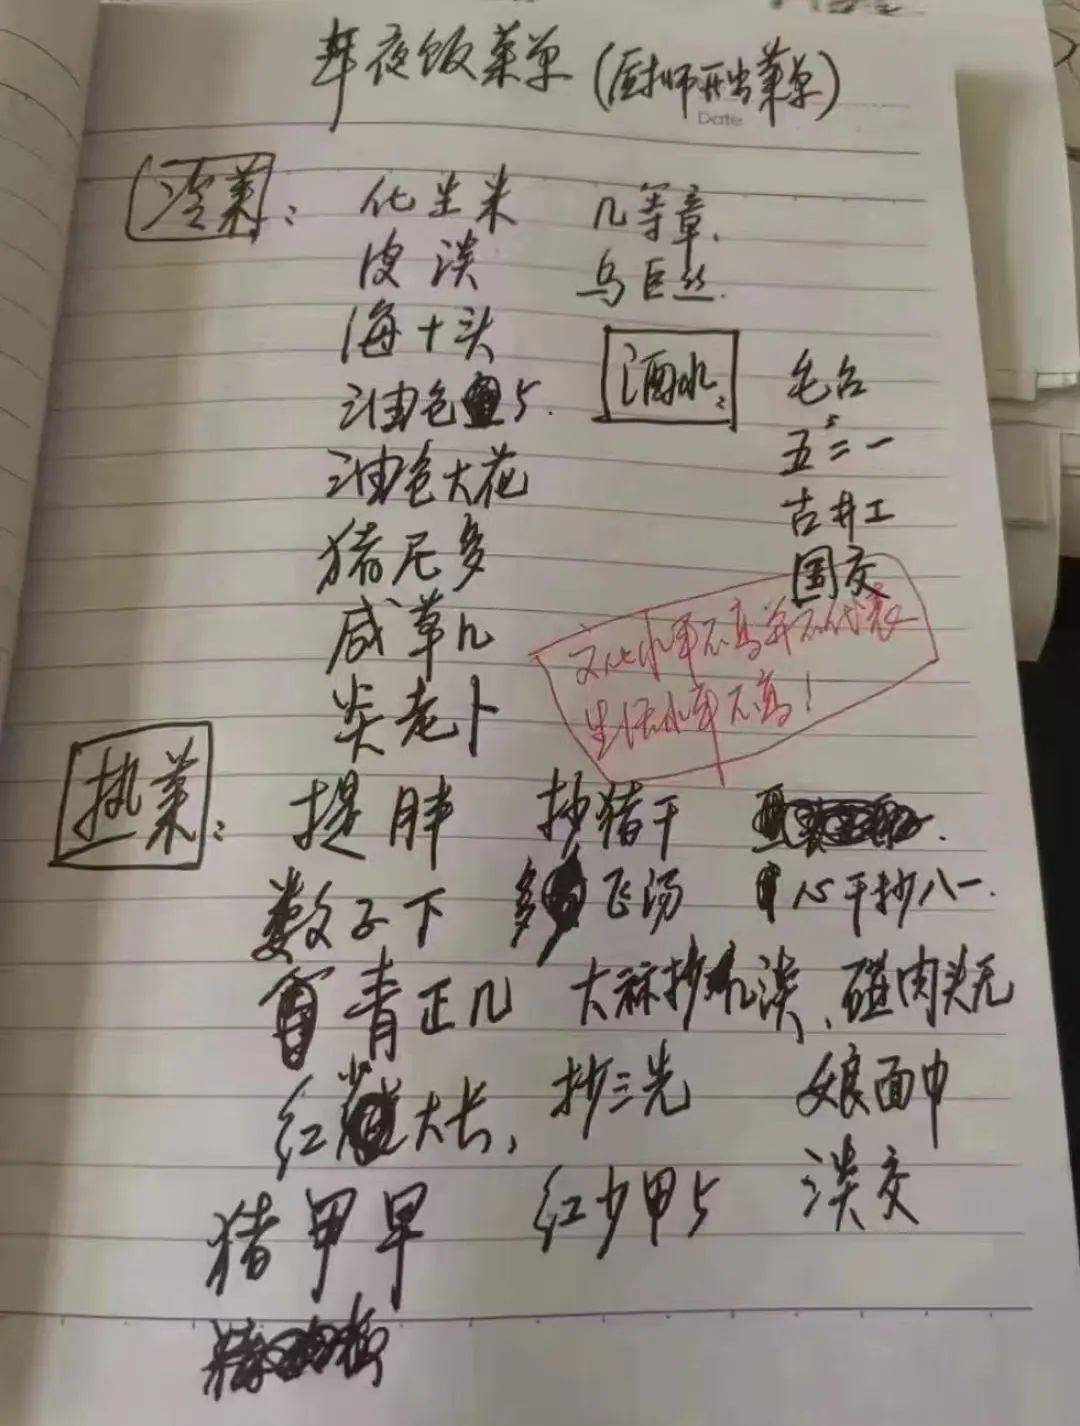 年夜饭菜单(厨师开出菜单)
Date
冷菜: 化生米 几等章.
皮淡 乌巨丝.
海十头
酒水: 毛台
油色5.
五二一
油色大花
古井工
猪尼多
国交
咸草几
文化水平不高并不代表
生活水平不高!
炎老卜
热菜: 提胖 抄猪干
数子下 多飞汤 心干抄八一.
青正几 大麻抄几淡、碰肉头元
红大长, 抄三先 娘面巾
猪甲早 红少甲5 淡交